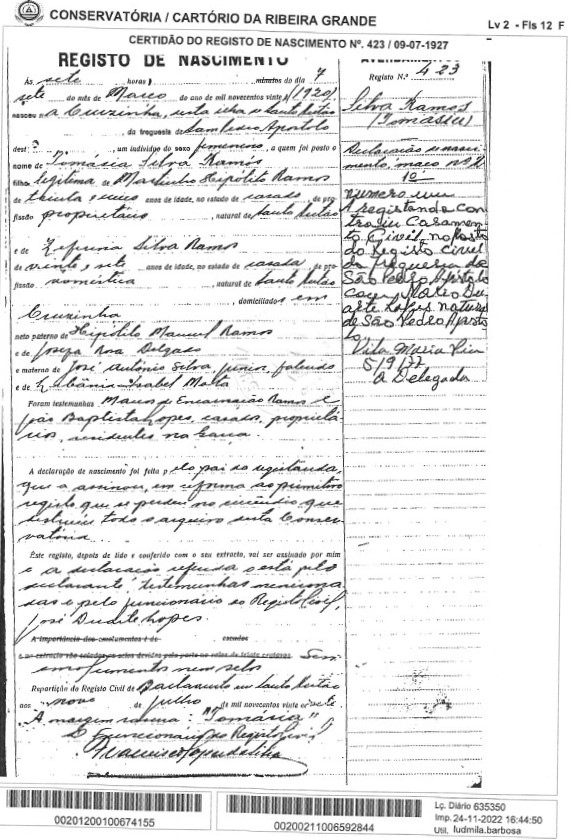 CONSERVATÓRIA / CARTÓRIO DA RIBEIRA GRANDE
Lv 2 - Fls 12 F
CERTIDÃO DO REGISTO DE NASCIMENTO Nº. 423 / 09-07-1927
REGISTO DE NASCIMENTO
Às sete horas, minutos do dia 7
sete do mês de Março do ano de mil novecentos vinte (1920)
nasceu a Cruzinha, desta ilha de Santo Antão
, da freguesia de Sam Pedro Apostolo
dest , um indivíduo do sexo femenino, a quem foi posto o
nome de Tomásia Silva Ramos
filha legítima de Martinho Hipólito Ramos
de trinta e anos de idade, no estado de casado, de pro-
fissão propietário, natural de Santo Antão
e de Silva Ramos
de vinte e sete anos de idade, no estado de casada, de pro-
fissão doméstica, natural de Santo Antão
, domiciliados em
Cruzinha
neto paterno de Hipólito Manuel Ramos
e de Josefa Rosa Delgado
e materno de José António Silva Junior, falecido
e de Isabel Mota
Foram testemunhas Marcos da Encarnação Ramos e
João Baptista Lopes, casados, propietá-
rios, residentes na
A declaração de nascimento foi feita pelo pai da registanda,
que a assinou, em reforma ao primitivo
registo que se perdeu no incêndio que
destruiu todo o arquivo desta Conser-
vatória
Este registo, depois de lido e conferido com o seu extracto, vai ser assinado por mim
e a declaração referida está pelo
declarante, testemunhas menciona-
das e pelo funcionário do Registo Civil,
José Duarte Lopes.
A importância dos emolumentos é de escudos
Sem
emolumentos nem selos
Repartição do Registo Civil de em Santo Antão
aos nove de julho de mil novecentos vinte e sete
A margem : "Tomásia"
O Funcionário do Registo Civil
Francisco
AVERBAMENTOS
Registo N.º 423
Silva Ramos
(Tomásia)
Declaração de nasci-
mento, maço nº 2
1º
Numero um
A registanda con-
traiu Casamen-
to Civil, no Posto
do Registo Civil
da freguesia de
São Pedro Apostolo
com Mario Du-
arte Lopes natural
de São Pedro Aposto-
lo
Vila Maria Pia
5/9/77
A Delegada
00201200100674155
00200211006592844
Lç. Diário 635350
Imp. 24-11-2022 16:44:50
Util. ludmila.barbosa